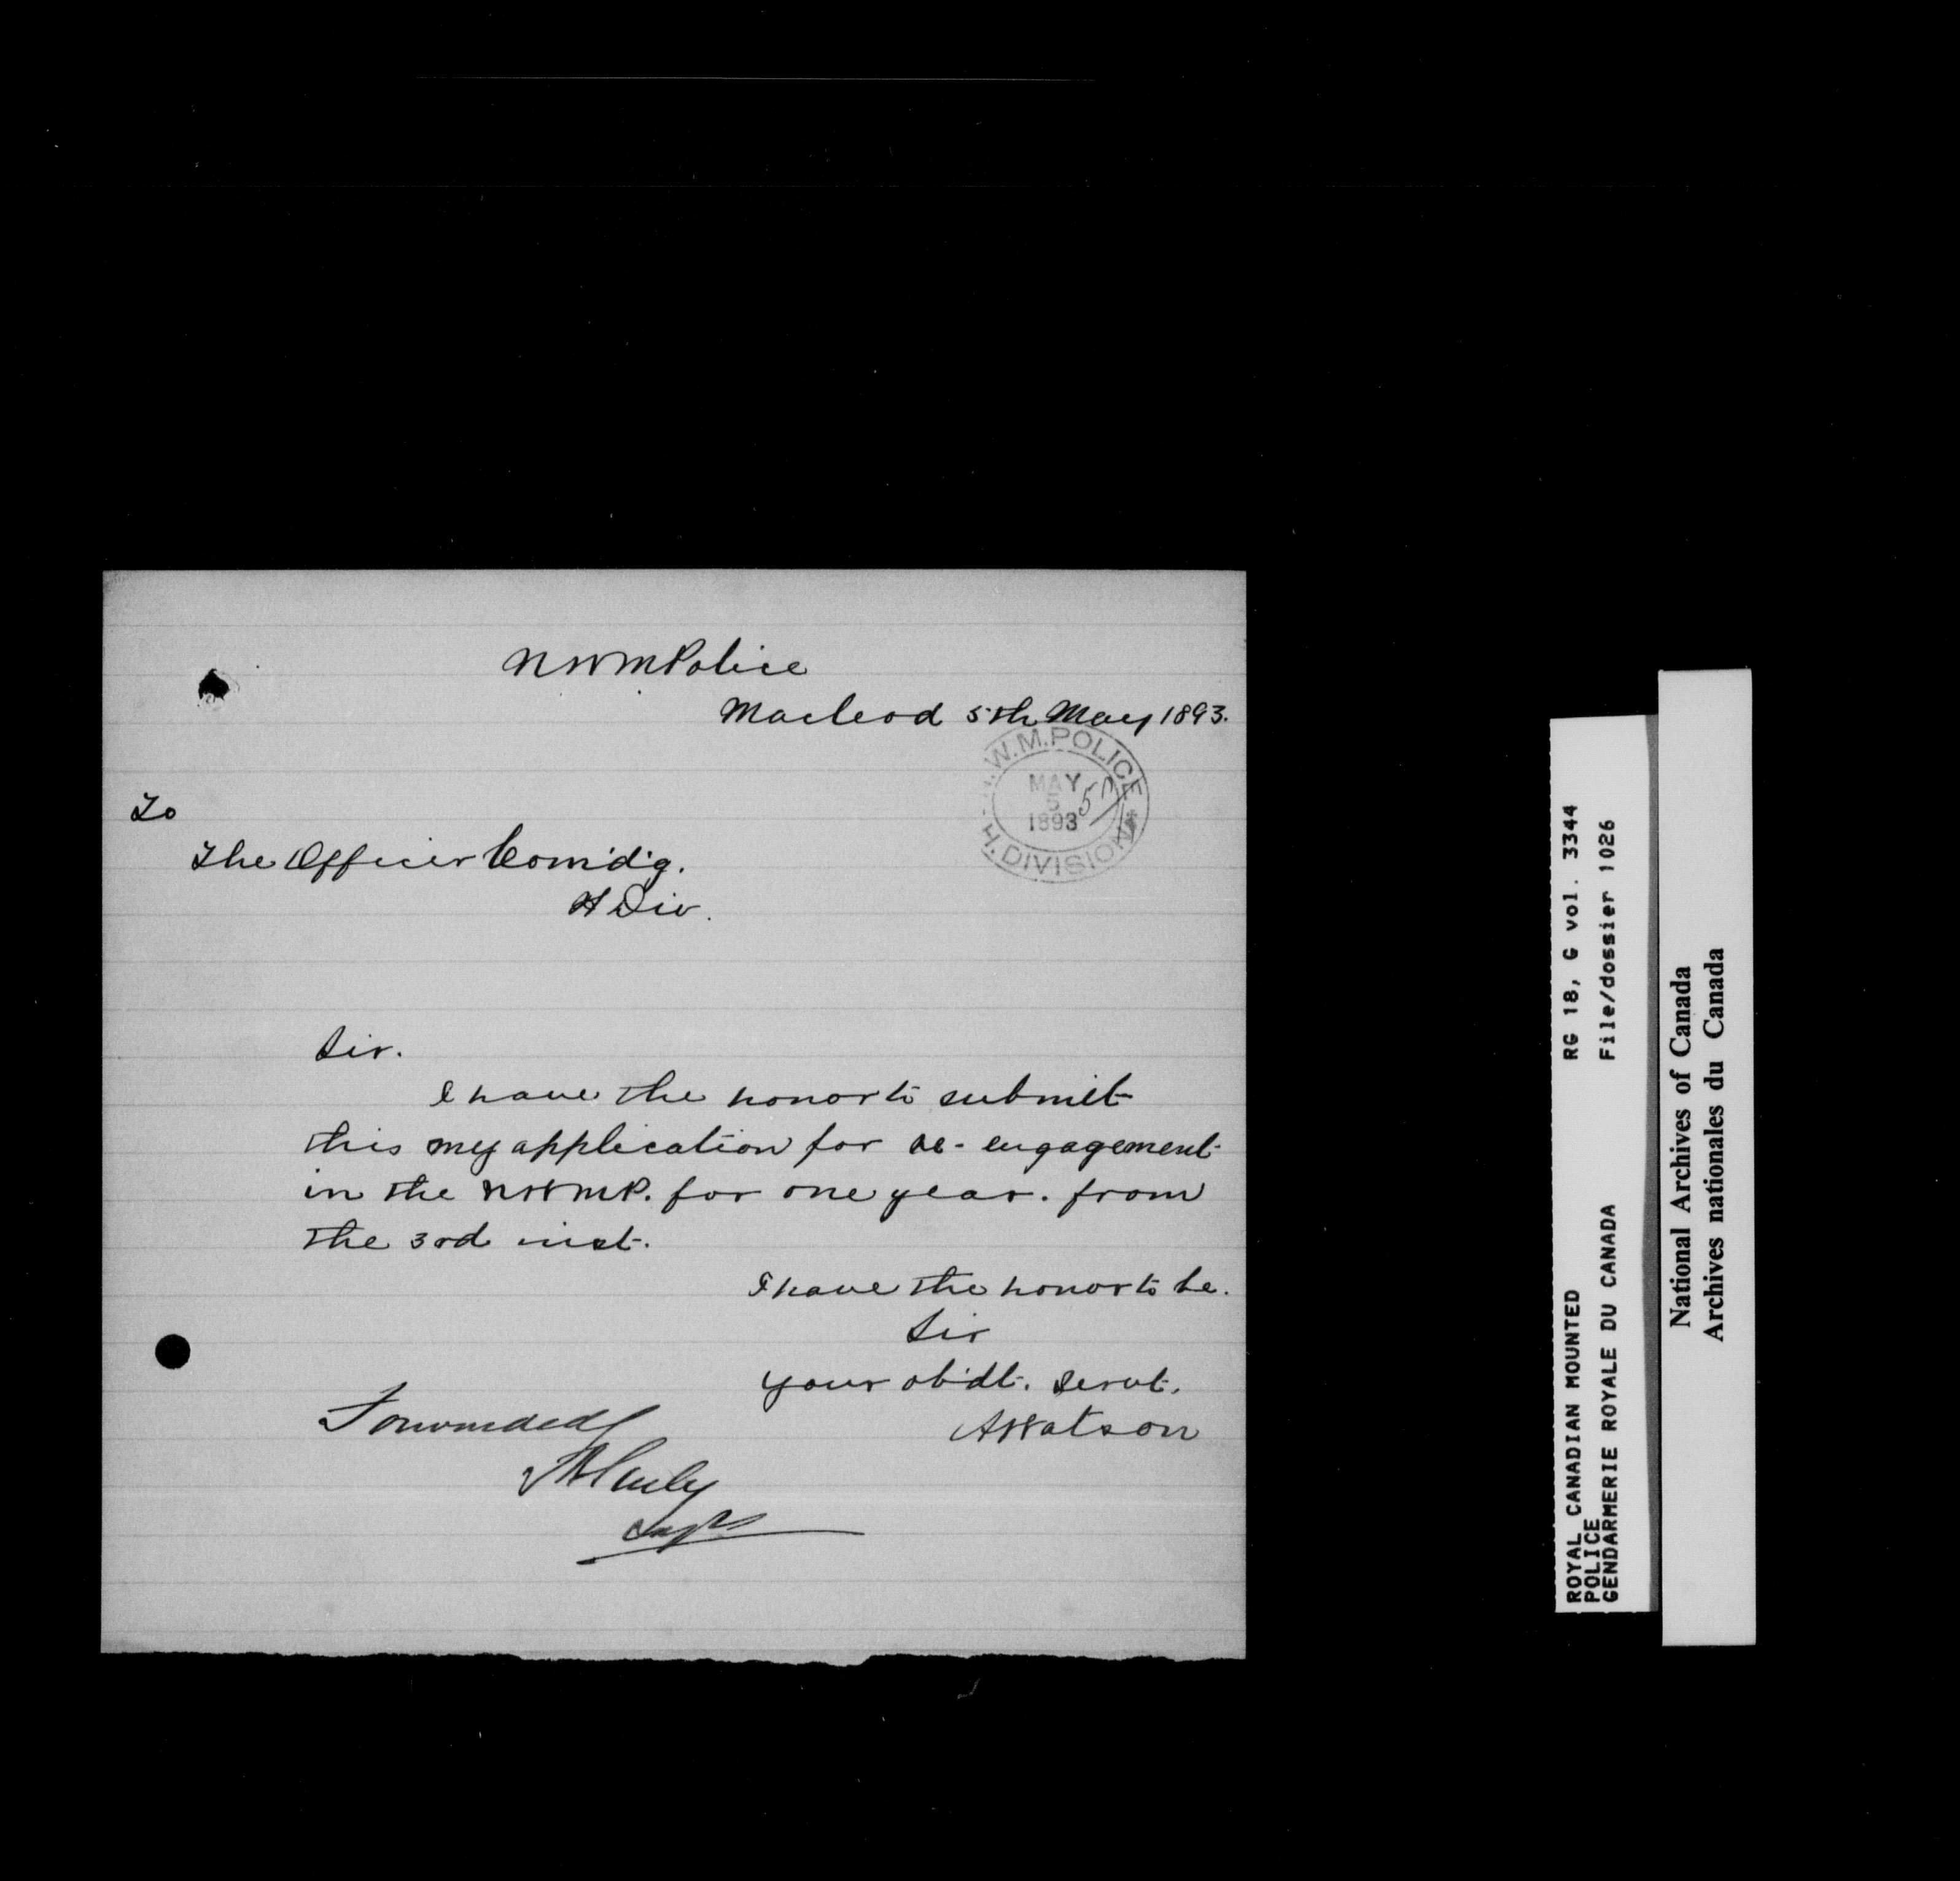 NWMPolice
Macleod 5th May 1893.
N.W.M.POLICE
MAY
5
1893
H. DIVISION
To
The Officer Com'd'g.
H Div.
Sir.
I have the honor to submit
this my application for re-engagement
in the NWMP. for one year. from
the 3rd inst.
I have the honor to be.
Sir
your ob'dt. servt.
AWatson
Forwarded
Supt
RG 18, G vol. 3344
File/dossier 1026
ROYAL CANADIAN MOUNTED
POLICE
GENDARMERIE ROYALE DU CANADA
National Archives of Canada
Archives nationales du Canada